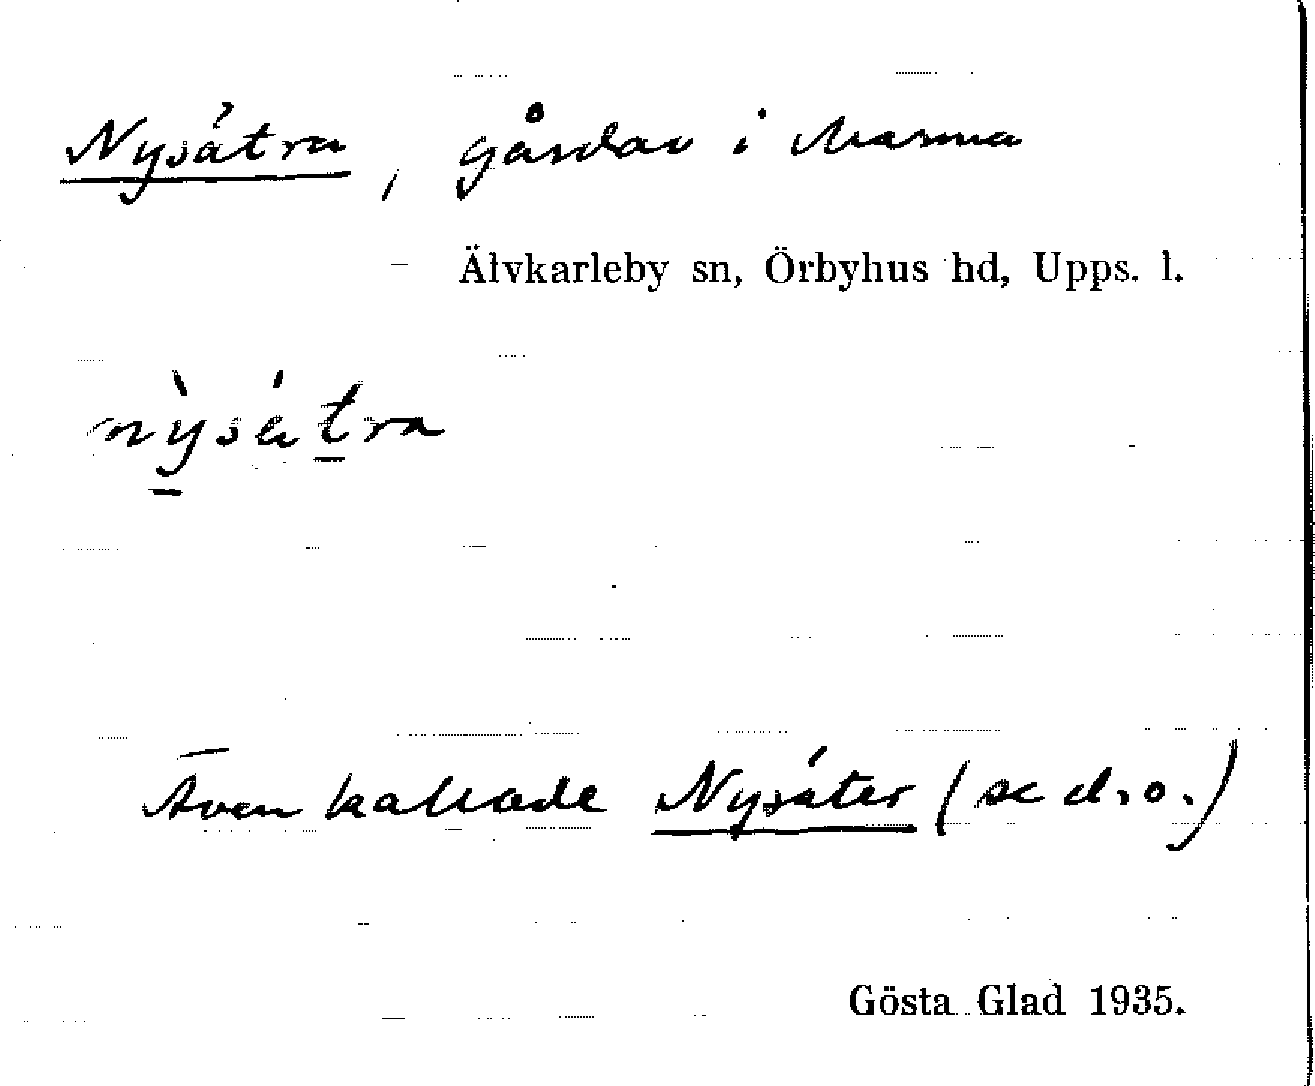 Nysátra, gårdar i Marma
Älvkarleby sn, Örbyhus hd, Upps. l.
nỳsátra
Även kallade Nysäter (se d. o.)
Gösta Glad 1935.